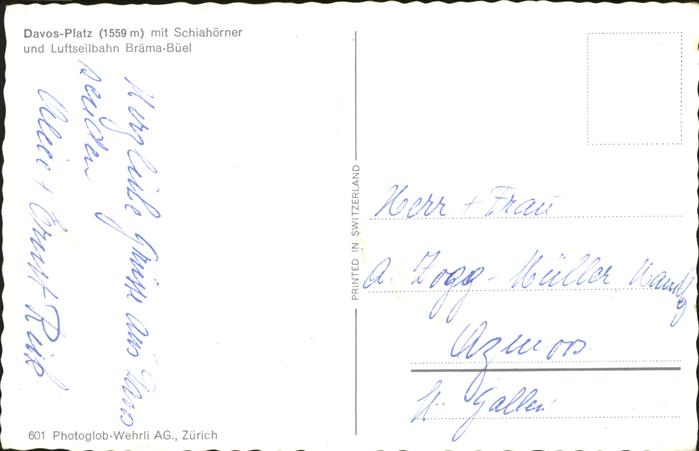 Davos-Platz (1559 m) mit Schiahörner
und Luftseilbahn Bräma-Büel
Herzliche Grüsse aus Davos
senden
Alice + Ernst
PRINTED IN SWITZERLAND
Herr + Frau
A. Zogg-Müller
Azmoos
St. Gallen
601 Photoglob-Wehrli AG., Zürich